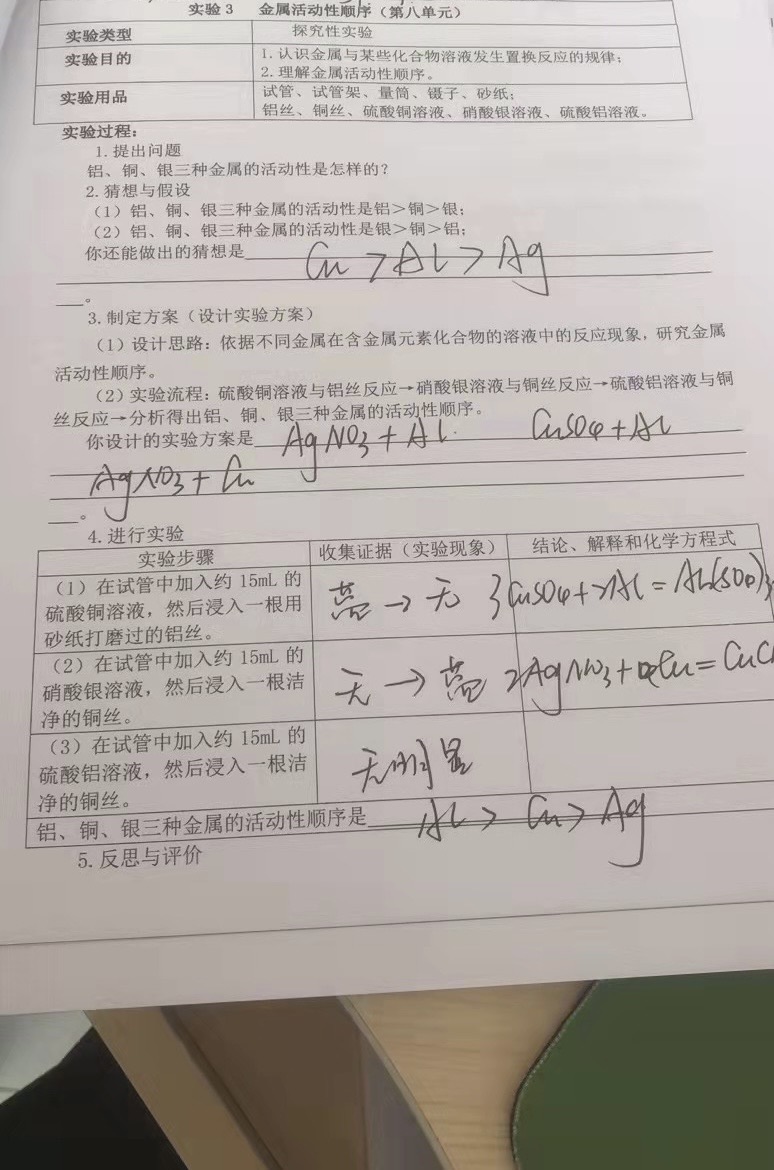 实验3 金属活动性顺序（第八单元）
实验类型 探究性实验
实验目的 1.认识金属与某些化合物溶液发生置换反应的规律；
2.理解金属活动性顺序。
实验用品 试管、试管架、量筒、镊子、砂纸；
铝丝、铜丝、硫酸铜溶液、硝酸银溶液、硫酸铝溶液。
实验过程：
1.提出问题
铝、铜、银三种金属的活动性是怎样的？
2.猜想与假设
（1）铝、铜、银三种金属的活动性是铝>铜>银；
（2）铝、铜、银三种金属的活动性是银>铜>铝；
你还能做出的猜想是 Cu > Al > Ag
。
3.制定方案（设计实验方案）
（1）设计思路：依据不同金属在含金属元素化合物的溶液中的反应现象，研究金属
活动性顺序。
（2）实验流程：硫酸铜溶液与铝丝反应→硝酸银溶液与铜丝反应→硫酸铝溶液与铜
丝反应→分析得出铝、铜、银三种金属的活动性顺序。
你设计的实验方案是 AgNO3 + Al. CuSO4 + Al
AgNO3 + Cu
。
4.进行实验
实验步骤 收集证据（实验现象） 结论、解释和化学方程式
（1）在试管中加入约 15mL 的
硫酸铜溶液，然后浸入一根用
砂纸打磨过的铝丝。
蓝 → 无 3CuSO4 + 2Al = Al2(SO4)3
（2）在试管中加入约 15mL 的
硝酸银溶液，然后浸入一根洁
净的铜丝。
无 → 蓝 2AgNO3 + Cu = Cu
（3）在试管中加入约 15mL 的
硫酸铝溶液，然后浸入一根洁
净的铜丝。
无明显
铝、铜、银三种金属的活动性顺序是 Al > Cu > Ag
5.反思与评价